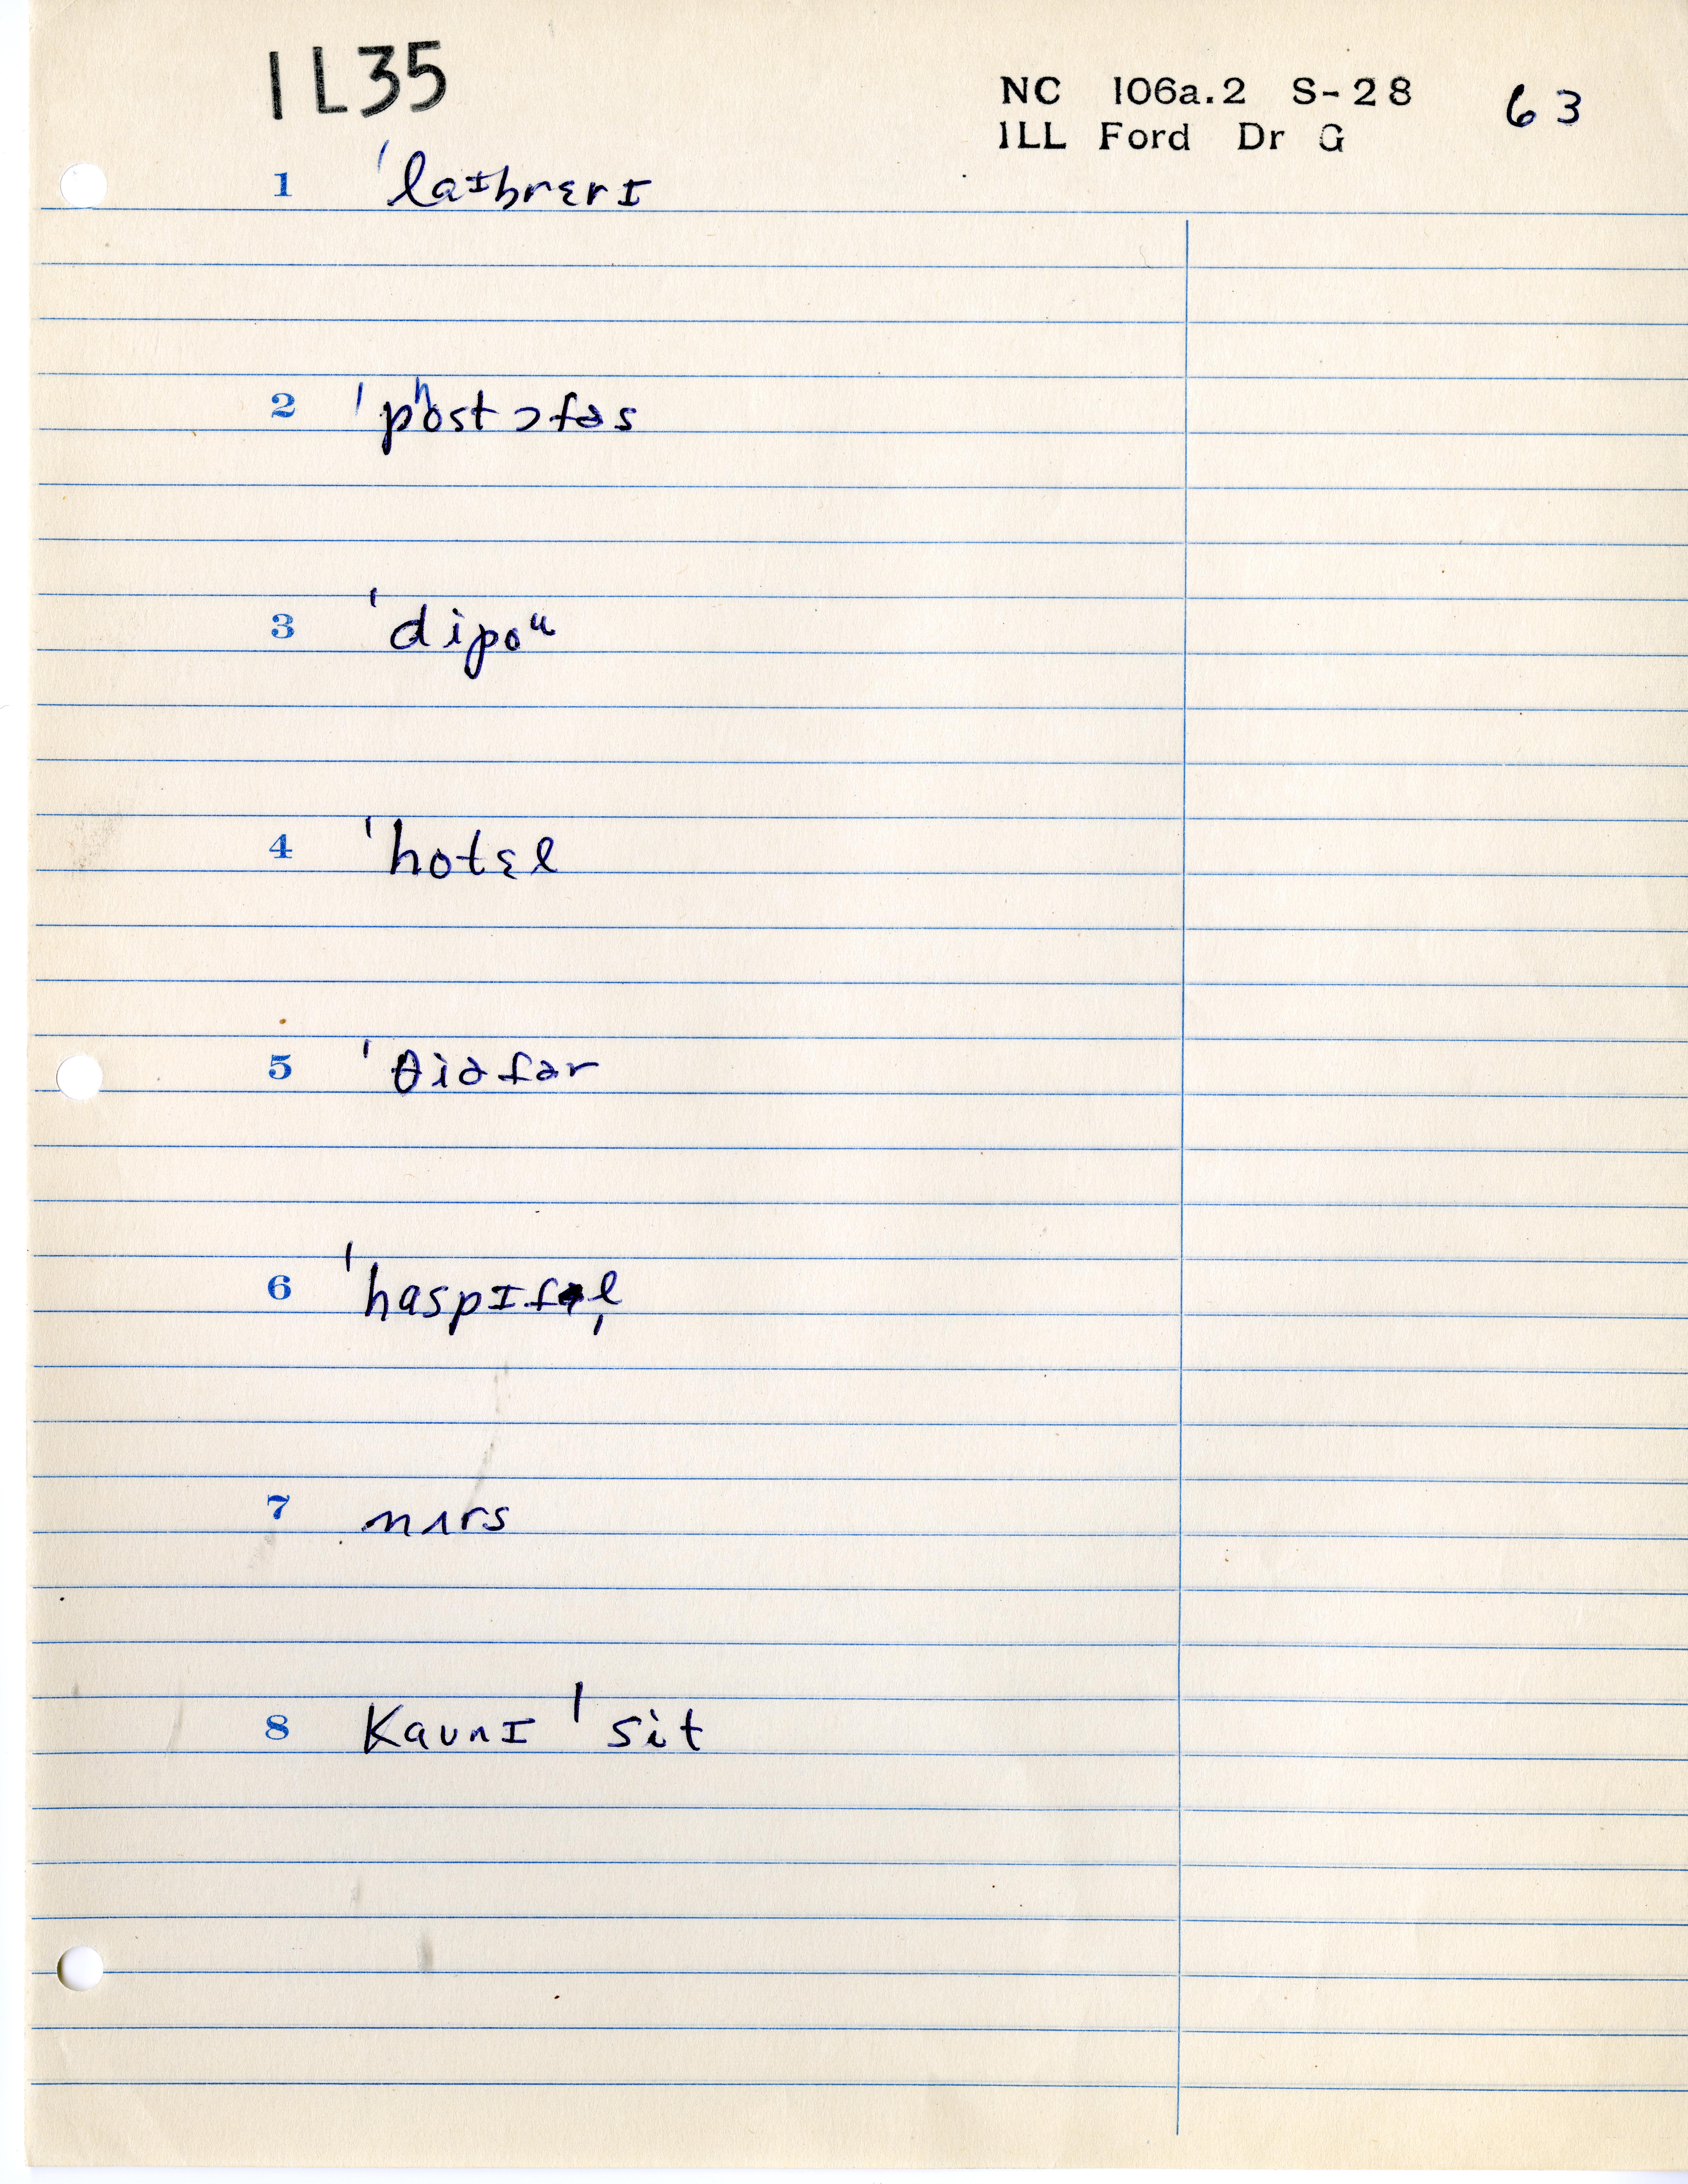 IL35
NC 106a.2 S-28 63
ILL Ford Dr G
1 ˈlaɪbrɛrɪ
2 ˈpʰostɔfəs
3 ˈdipoᵘ
4 ˈhotɛl
5 ˈθiəɾər
6 ˈhaspɪɾl̩
7 nʌrs
8 Kaʊnɪ ˈsit